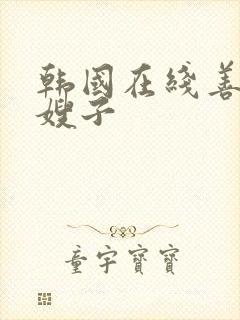 韩国在线善
嫂子
童宇寶寶